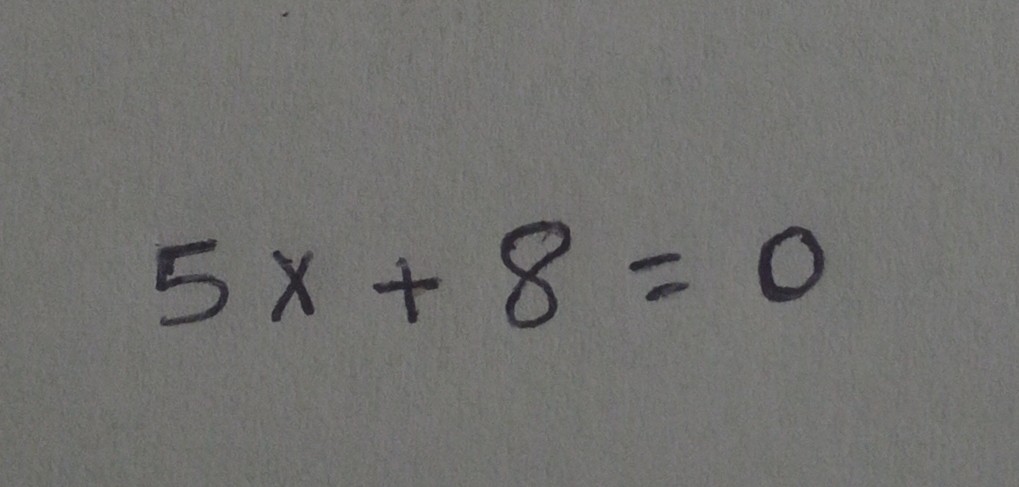 5x + 8 = 0